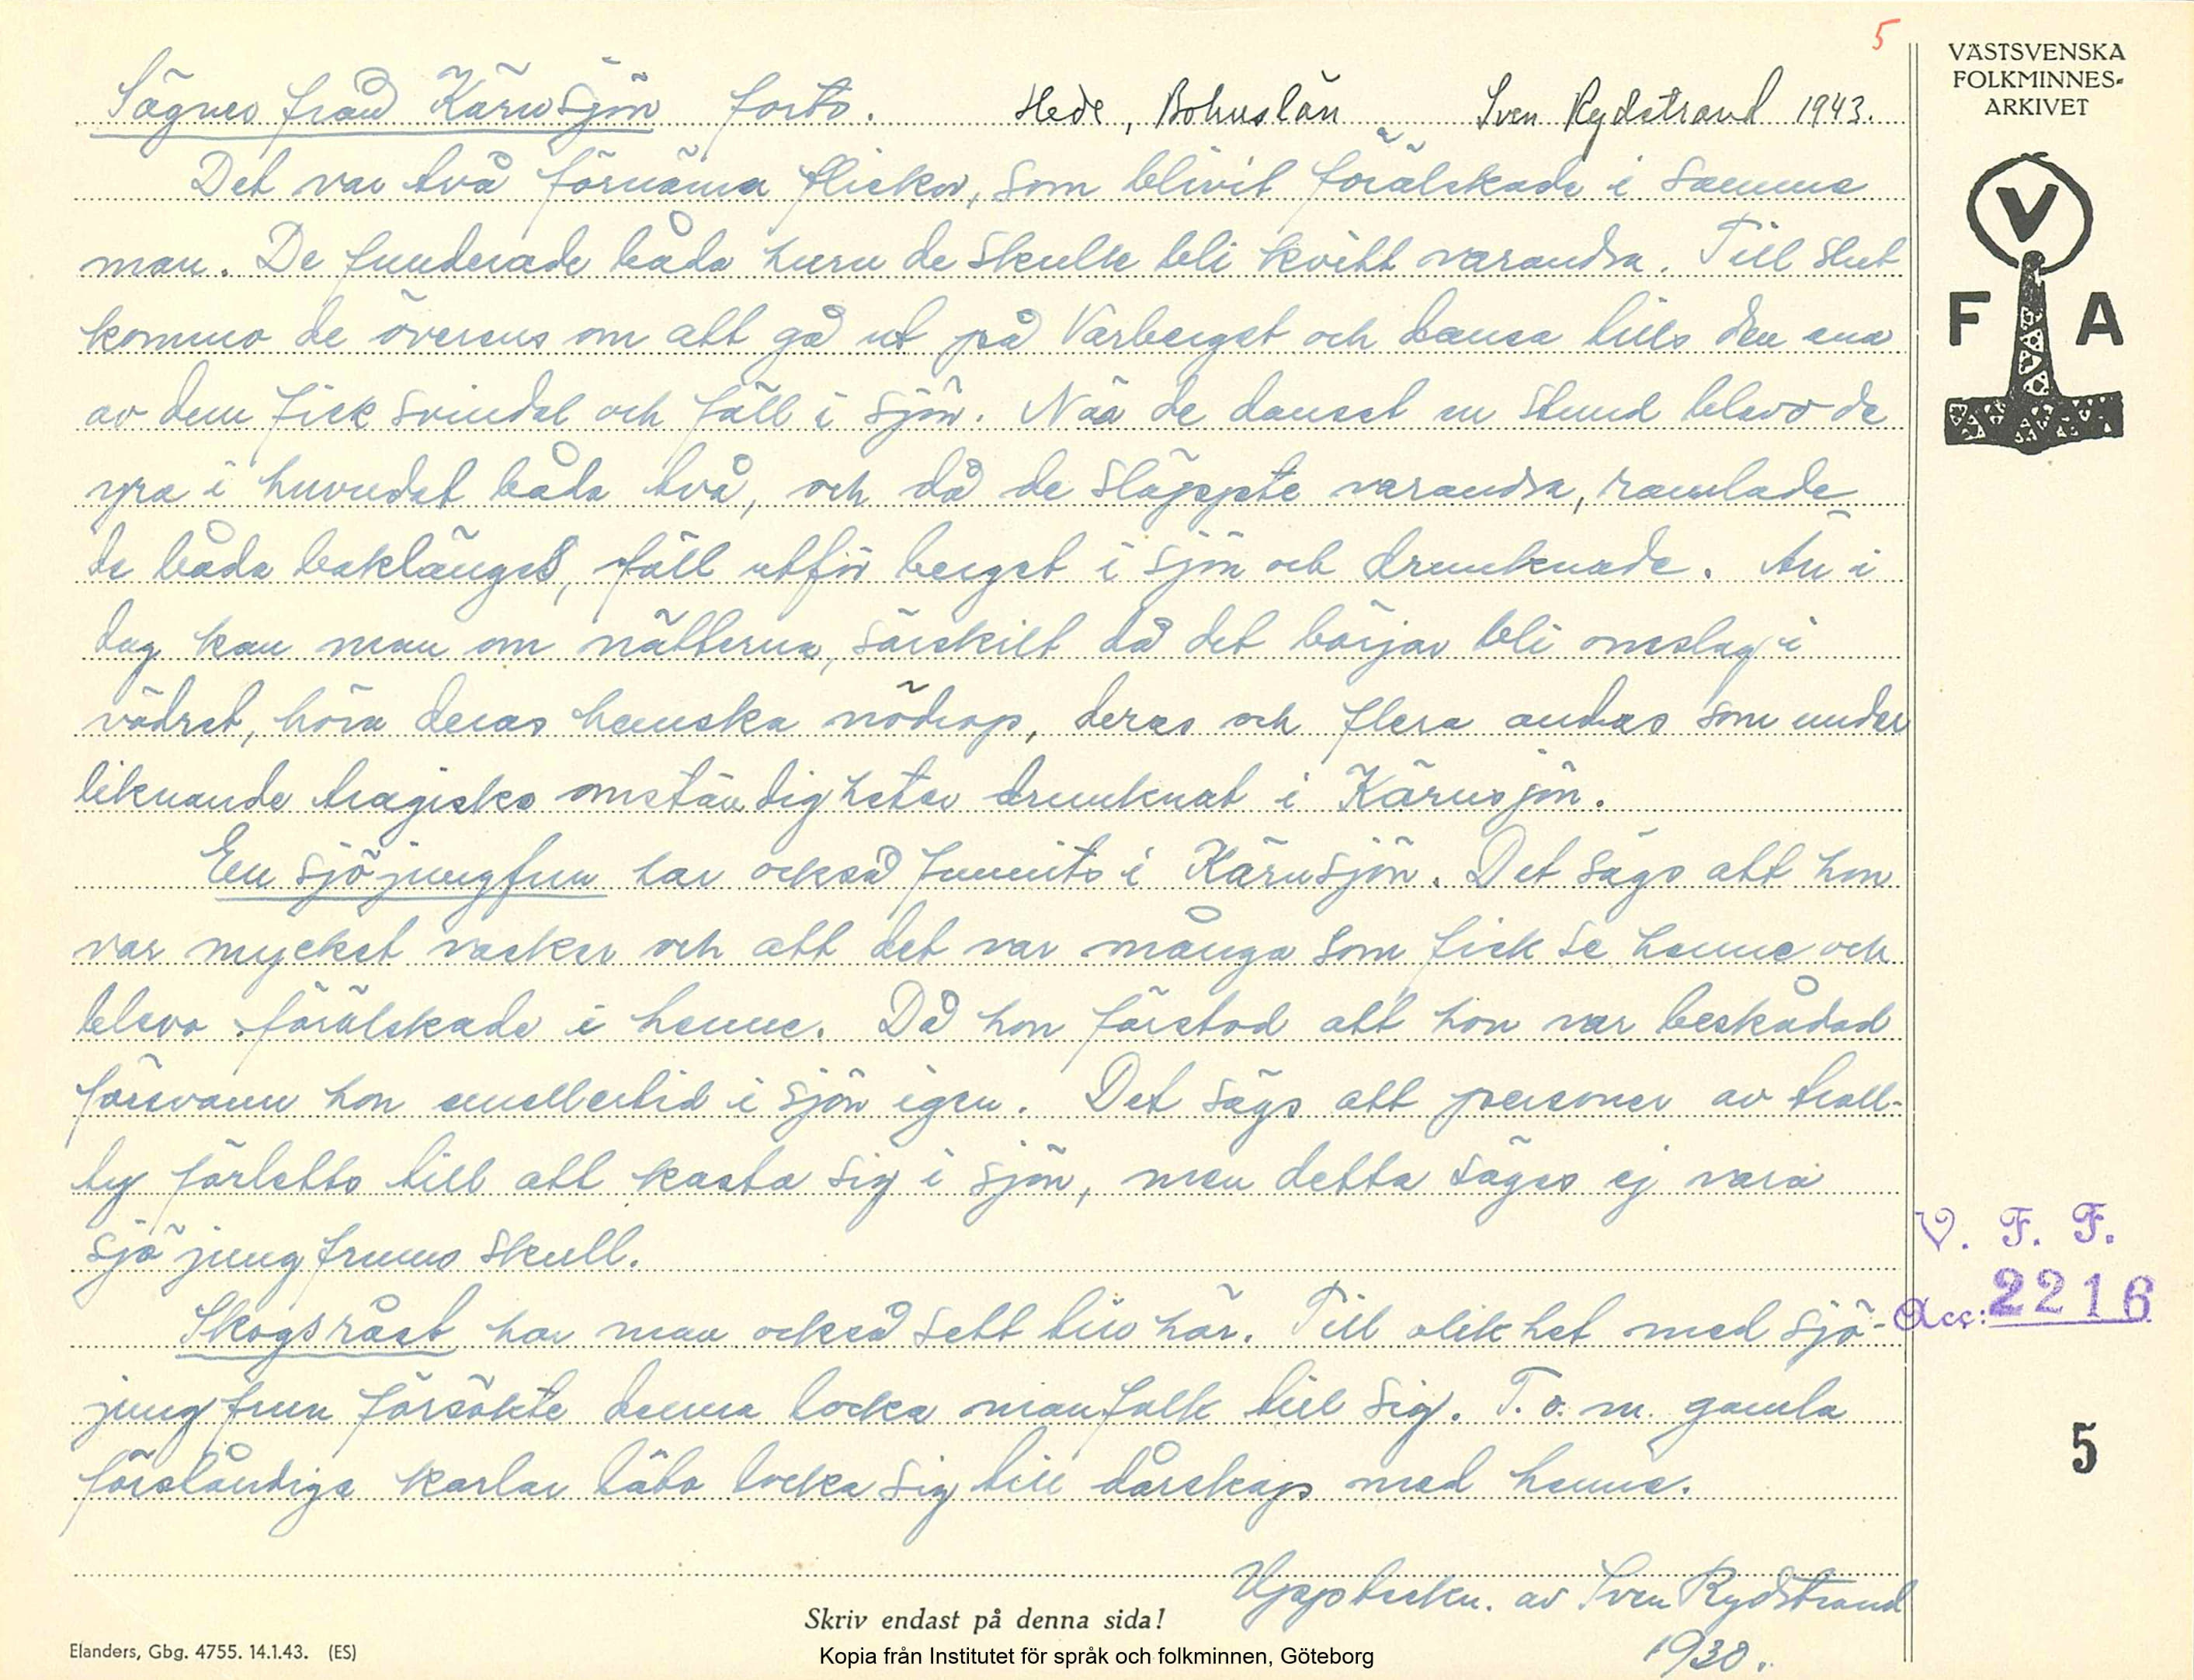 5
VÄSTSVENSKA
FOLKMINNES-
ARKIVET
V
F A
Sägner från Kärnsjön forts. Hede, Bohuslän Sven Rydstrand 1943.
Det var två förnäma flickor, som blivit förälskade i samma
man. De funderade båda huru de skulle bli kvitt varandra. Till slut
kommo de överens om att gå ut på Vårberget och dansa tills den ena
av dem fick svindel och föll i sjön. När de dansat en stund blevo de
yra i huvudet båda två, och då de släppte varandra, ramlade
de båda baklänges, föll utför berget i sjön och drunknade. Än i
dag kan man om nätterna, särskilt då det börjar bli omslag i
vädret, höra deras hemska nödrop, deras och flera andras som under
liknande tragiska omständigheter drunknat i Kärnsjön.
En sjöjungfru har också funnits i Kärnsjön. Det sägs att hon
var mycket vacker och att det var många som fick se henne och
blevo förälskade i henne. Då hon förstod att hon var beskådad
försvann hon emellertid i sjön igen. Det sägs att personer av troll-
tyg förletts till att kasta sig i sjön, men detta säges ej vara
sjöjungfruns skull.
Skogsrået har man också sett till här. Till olikhet med sjö-
jungfrun försökte denna locka manfolk till sig. T. o. m. gamla
förståndiga karlar läto locka sig till dårskap med henne.
Uppteckn. av Sven Rydstrand
1930.
V. F. F.
Acc: 2216
5
Skriv endast på denna sida!
Elanders, Gbg. 4755. 14.1.43. (ES)
Kopia från Institutet för språk och folkminnen, Göteborg